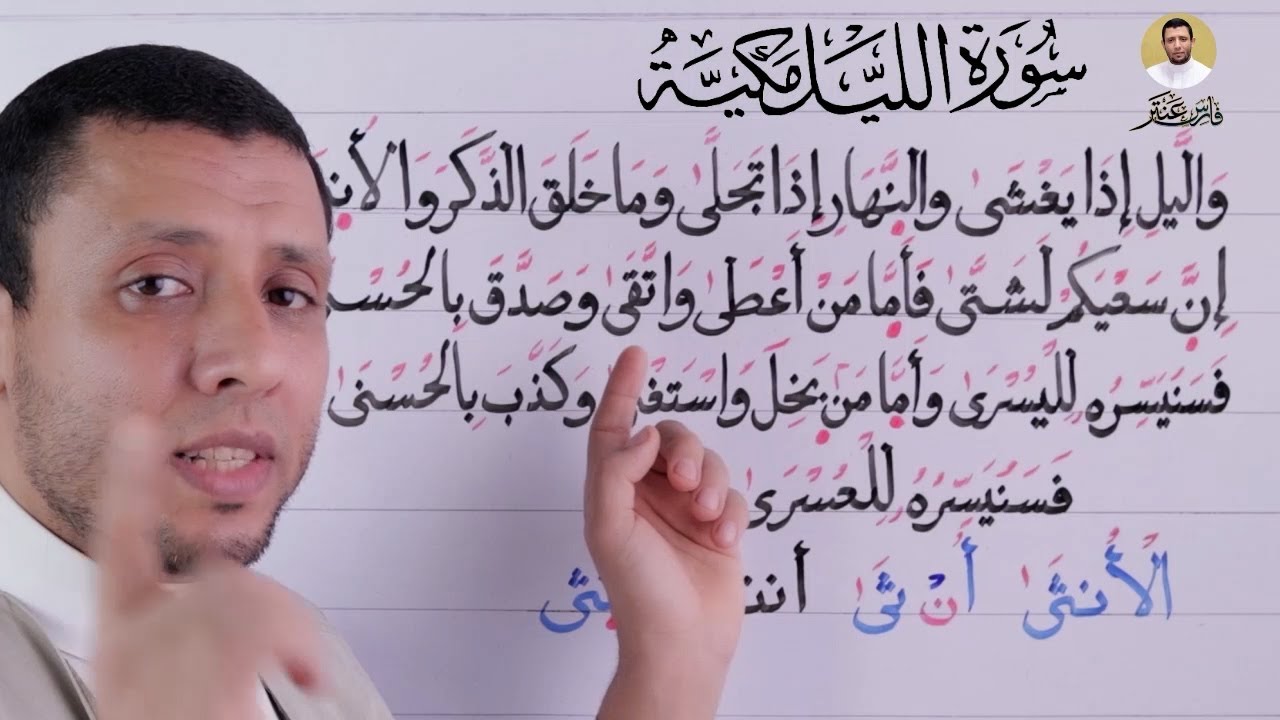 سُورَةُ اللَّيْلِ مَكِّيَّةٌ
فارس عنتر
وَالَّيلِ إِذَا يَغْشَىٰ والنَّهَارِ إِذَا تَجَلَّىٰ وَمَا خَلَقَ الذَّكَرَ وَا
إِنَّ سَعْيَكُمْ لَشَتَّىٰ فَأَمَّا مَنْ أَعْطَىٰ وَاتَّقَىٰ وَصَدَّقَ بِالحُسْ
فَسَنُيَسِّرُه لِليُسْرَىٰ وَأَمَّا مَن بَخِلَ وَاسْتَغْ وَكَذَّبَ بِالحُسْنَىٰ
فَسَنُيَسِّرُهُ لِلْعُسْرَىٰ
الْأُنثَىٰ أُنْ ثَىٰ